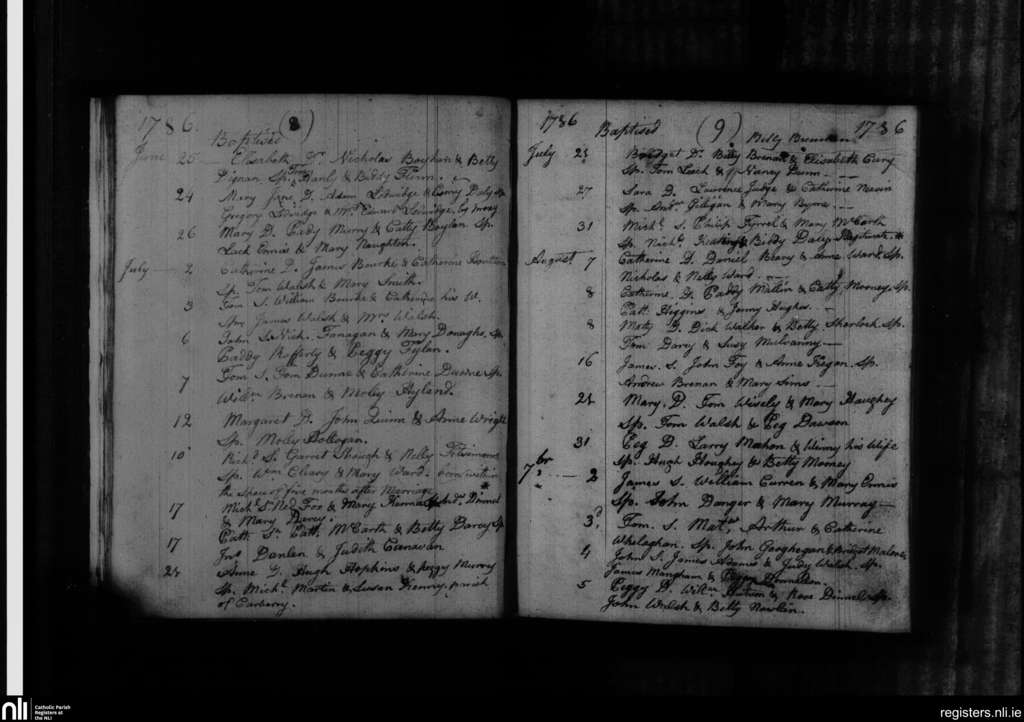 1786. (8)
Baptised
June 25 Elisabeth D. Nicholas & Betty
Dignan Sp. & Biddy Flinn.
24 Mary Jane D. Adam Ledwidge & Daly Sp.
Gregory Ledwidge & Mrs Edward Ledwidge, by proxy
26 Mary D. Paddy Murry & Catty Boylan Sp.
Luck Ennis & Mary Naughton.
July 2 Catherine D. James Bourke & Catherine
Sp. Tom Walsh & Mary Smith.
3 Tom S. William Bourke & Catherine his W.
Sp. James Walsh & Mrs Walsh.
6 John S. Nich. Fanagan & Mary Donaghs. Sp.
Paddy Rafferty & Peggy Fylan.
7 Tom S. Tom Dunne & Catherine Sp.
Willm Brenan & Molly Hyland.
12 Margaret D. John Quinn & Anne Wright
Sp. Molly Hollogan.
10 Richd S. Garret & Nelly Fitsimons
Sp. Wm Cleary & Mary Ward. born within
the space of five months after Marriage
17 Michl S. Ned Fox & Mary
& Mary Darcy.
Patt. S. Patt. McCarth & Betty Darcy Sp
17 Jno & Judith
23 Anne D. Hugh Hopkins & Peggy Murry
Sp. Michl Martin & Susan Henry, parish
of Carberry.
1786 Baptised (9) Billy 1786
July 23 Bridget D. Billy Brenan & Elisabeth
Sp. Tom Leech & Nancy Dunn.
27 Sara D. Lawrence Judge & Catherine
Sp. Andw Giligan & Mary Byrne
31 Michl S. Philip Tyrrel & Mary McCarth
Sp. Nichs & Biddy Daley
August 7 Catherine D. Daniel & Anne Ward Sp.
Nicholas & Nelly Ward.
8 Catherine D. Paddy Mullin & Catty Mooney Sp.
Patt Higgins & Jenny Hughes.
8 Maty D. Dick Walker & Betty Sherlock Sp.
Tom Darcy & Susy Mulvanny
16 James S. John Foy & Anne Fegan Sp.
Andrew Brenan & Mary Sims.
24 Mary D. Tom Wisely & Mary Haughey
Sp. Tom Walsh & Peg Dawson
31 Peg D. Larry Mahon & Winny his Wife
Sp. Hugh Houghey & Betty Mooney
7br 2 James S. William Curren & Mary Ennis
Sp. John Danger & Mary Murray
3d Tom S. Matw Arthur & Catherine
Whelaghan. Sp. John Gaoghegan & Bridget Malone
4 John S. James Adams & Judy Walsh Sp.
James Mangham & Peggy
5 Peggy D. Willm & Rose Sp.
John Walsh & Betty
nli Catholic Parish
Registers at
the NLI
registers.nli.ie